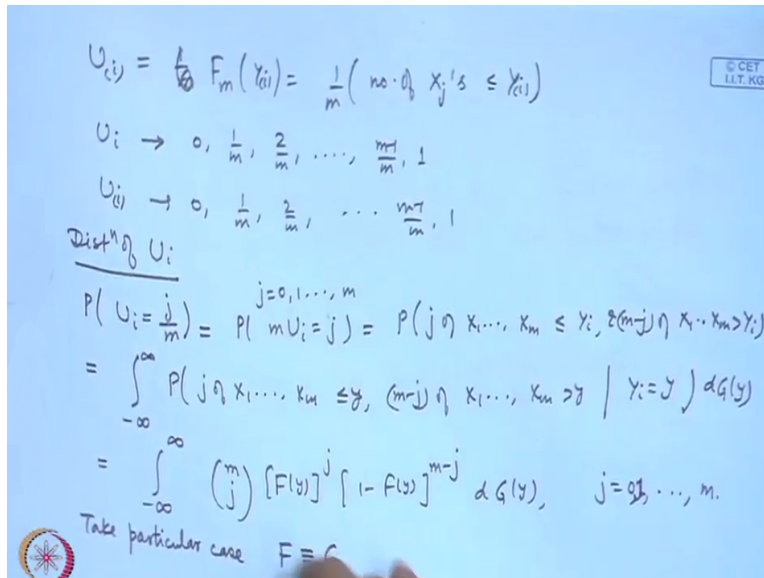 U_(i) = F_m (Y_(i)) = 1/m ( no. of X_j's ≤ Y_(i) )
© CET
I.I.T. KG
U_i → 0, 1/m, 2/m, ...., m-1/m, 1
U_(i) → 0, 1/m, 2/m, ... m-1/m, 1
Distⁿ of U_i
j=0,1..., m
P( U_i = j/m ) = P( mU_i = j ) = P( j of X_1..., X_m ≤ Y_i, & (m-j) of X_1.. X_m > Y_i )
= ∫_{-∞}^{∞} P( j of X_1...., X_m ≤ y, (m-j) of X_1..., X_m > y | Y_i = y ) dG(y)
= ∫_{-∞}^{∞} (m j) [F(y)]^j [1- F(y)]^{m-j} dG(y), j=0,1, ..., m.
Take particular case F ≡ G